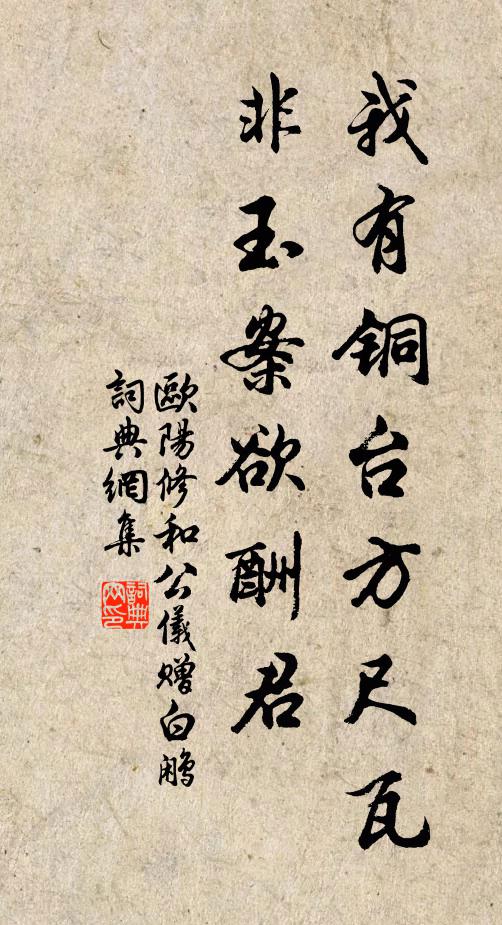 我有铜台方尺瓦
非玉案欲酬君
歐陽修和公儀赠白鹇
詞典網集
詞典
网印